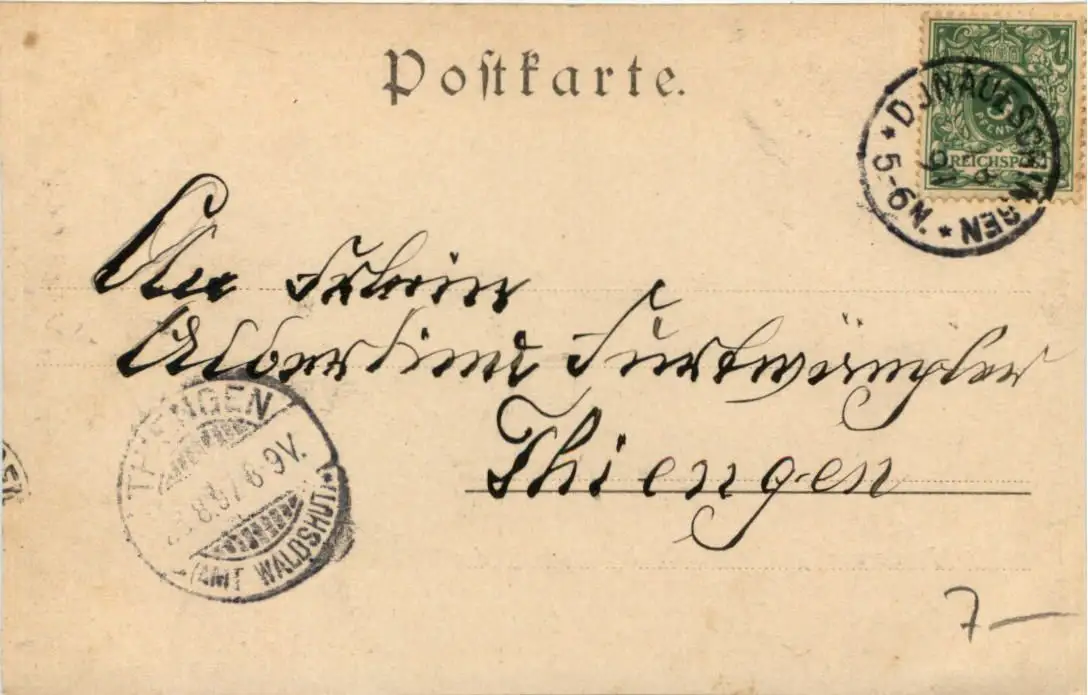 Postkarte.
DONAUESCHINGEN
5-6N.
5
PFENNIG
REICHSPOST
An Fräulein
Albertine Furtwängler
Thiengen
THIENGEN
8.97 8-9V.
(AMT WALDSHUT)
7 —